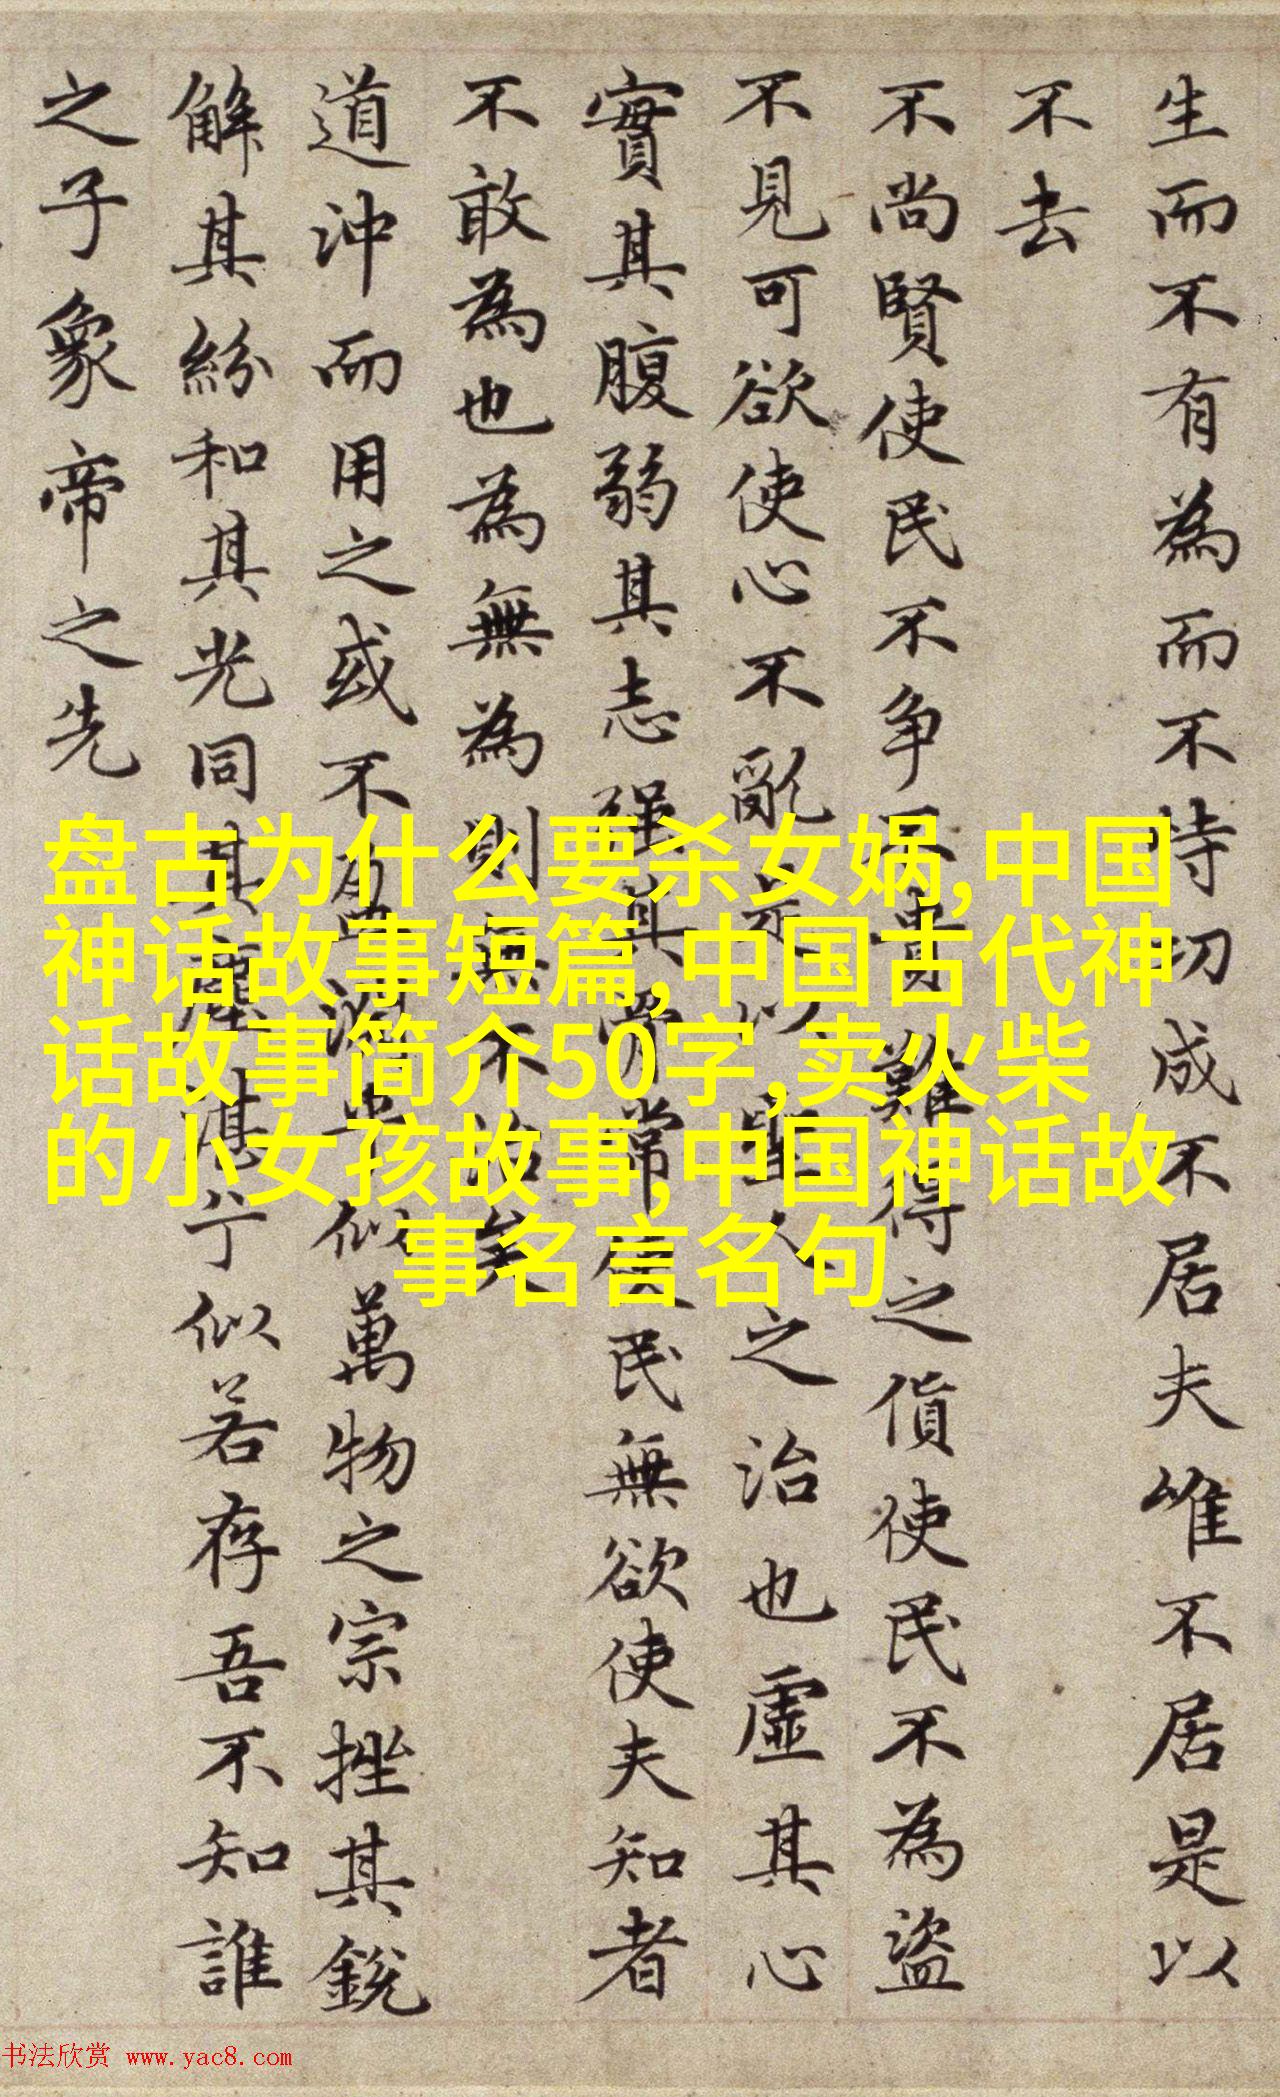 生而不有為而不恃功成不居夫唯不居是以
不去
不尚賢使民不争不貴難得之貨使民不為盜
不見可欲使心不亂是以聖人之治也虛其心
實其腹弱其志强其骨常使民無欲使夫知者
不敢為也為無為則無不治矣
道沖而用之或不盈淵乎似萬物之宗挫其銳
解其紛和其光同其塵湛兮似若存吾不知誰
之子象帝之先
盘古为什么要杀女娲,中国
神话故事短篇,中国古代神
话故事简介50字,卖火柴
的小女孩故事,中国神话故
事名言名句
书法欣赏 www.yac8.com